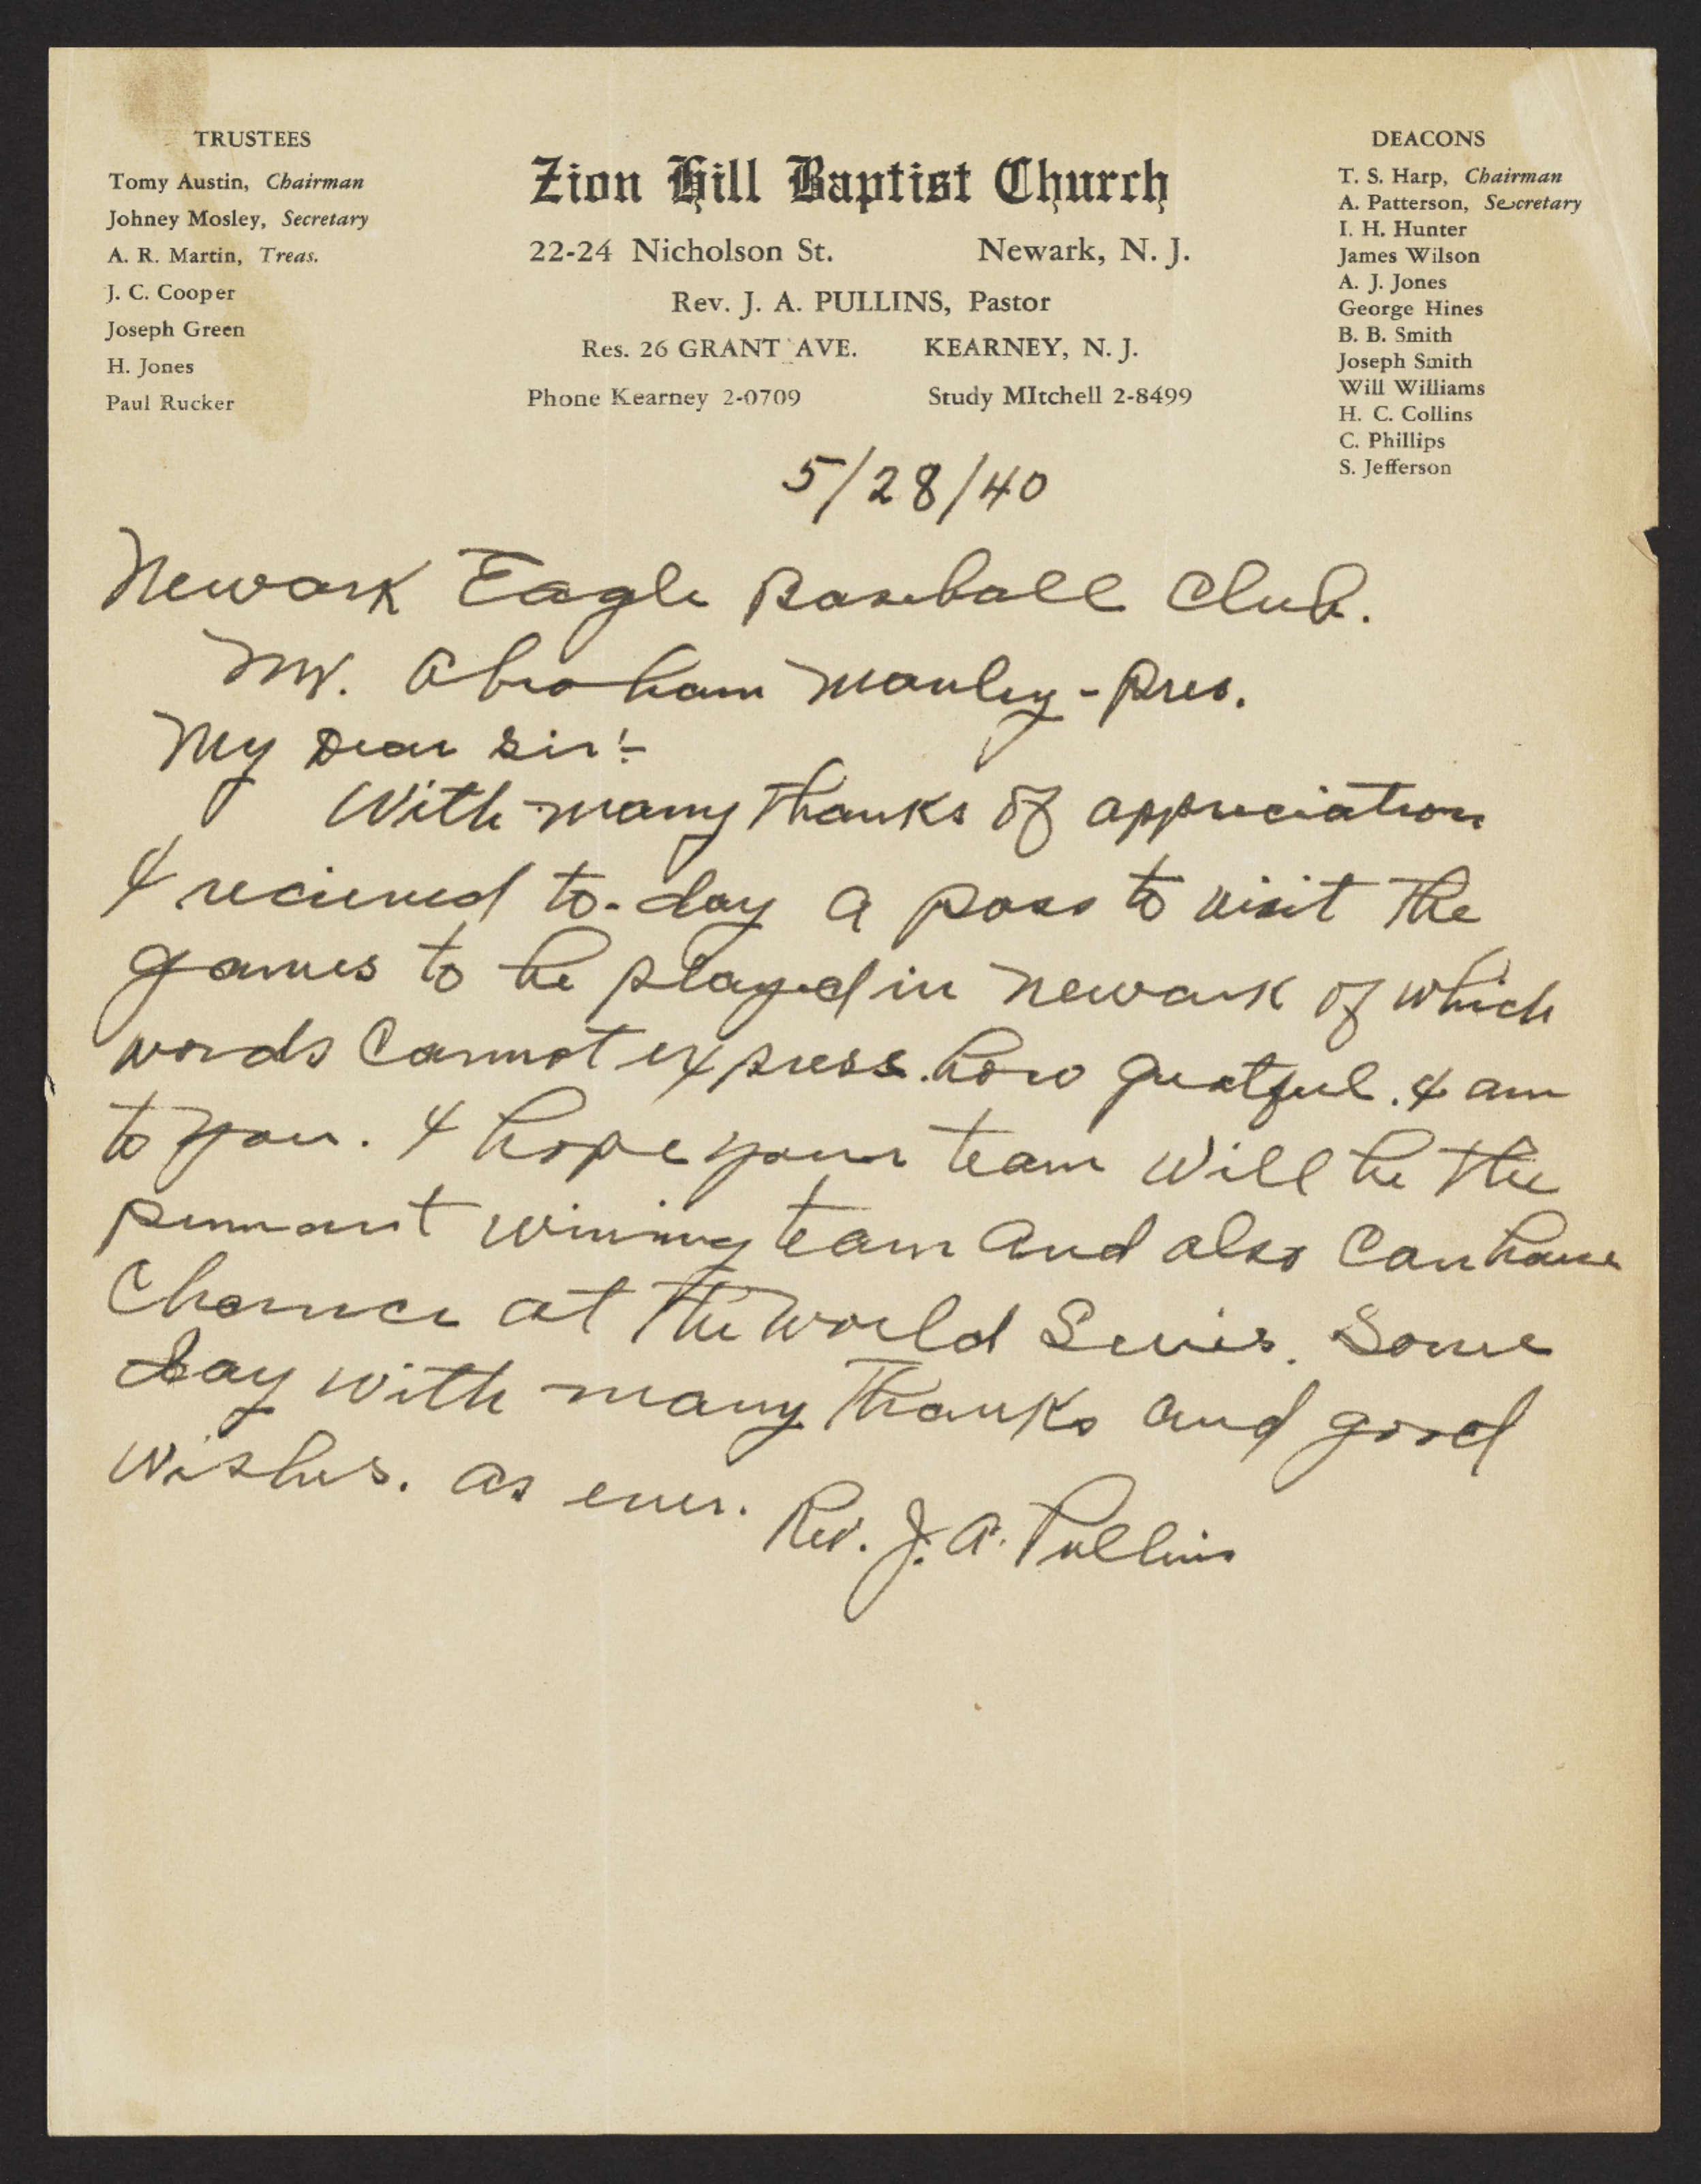 TRUSTEES
Tomy Austin, Chairman
Johney Mosley, Secretary
A. R. Martin, Treas.
J. C. Cooper
Joseph Green
H. Jones
Paul Rucker
Zion Hill Baptist Church
22-24 Nicholson St. Newark, N. J.
Rev. J. A. PULLINS, Pastor
Res. 26 GRANT AVE. KEARNEY, N. J.
Phone Kearney 2-0709 Study MItchell 2-8499
DEACONS
T. S. Harp, Chairman
A. Patterson, Secretary
I. H. Hunter
James Wilson
A. J. Jones
George Hines
B. B. Smith
Joseph Smith
Will Williams
H. C. Collins
C. Phillips
S. Jefferson
5/28/40
Newark Eagle Baseball Club.
Mr. Abraham Manley - Pres.
My Dear Sir:-
With many thanks of appreciation
I recieved to-day a pass to visit the
games to be played in Newark of which
words cannot express. how greatful. I am
to you. I hope your team will be the
pennant wining team and also can have
chance at the World Series. Some
day with many thanks and good
wishes. as ever. Rev. J. A. Pullins